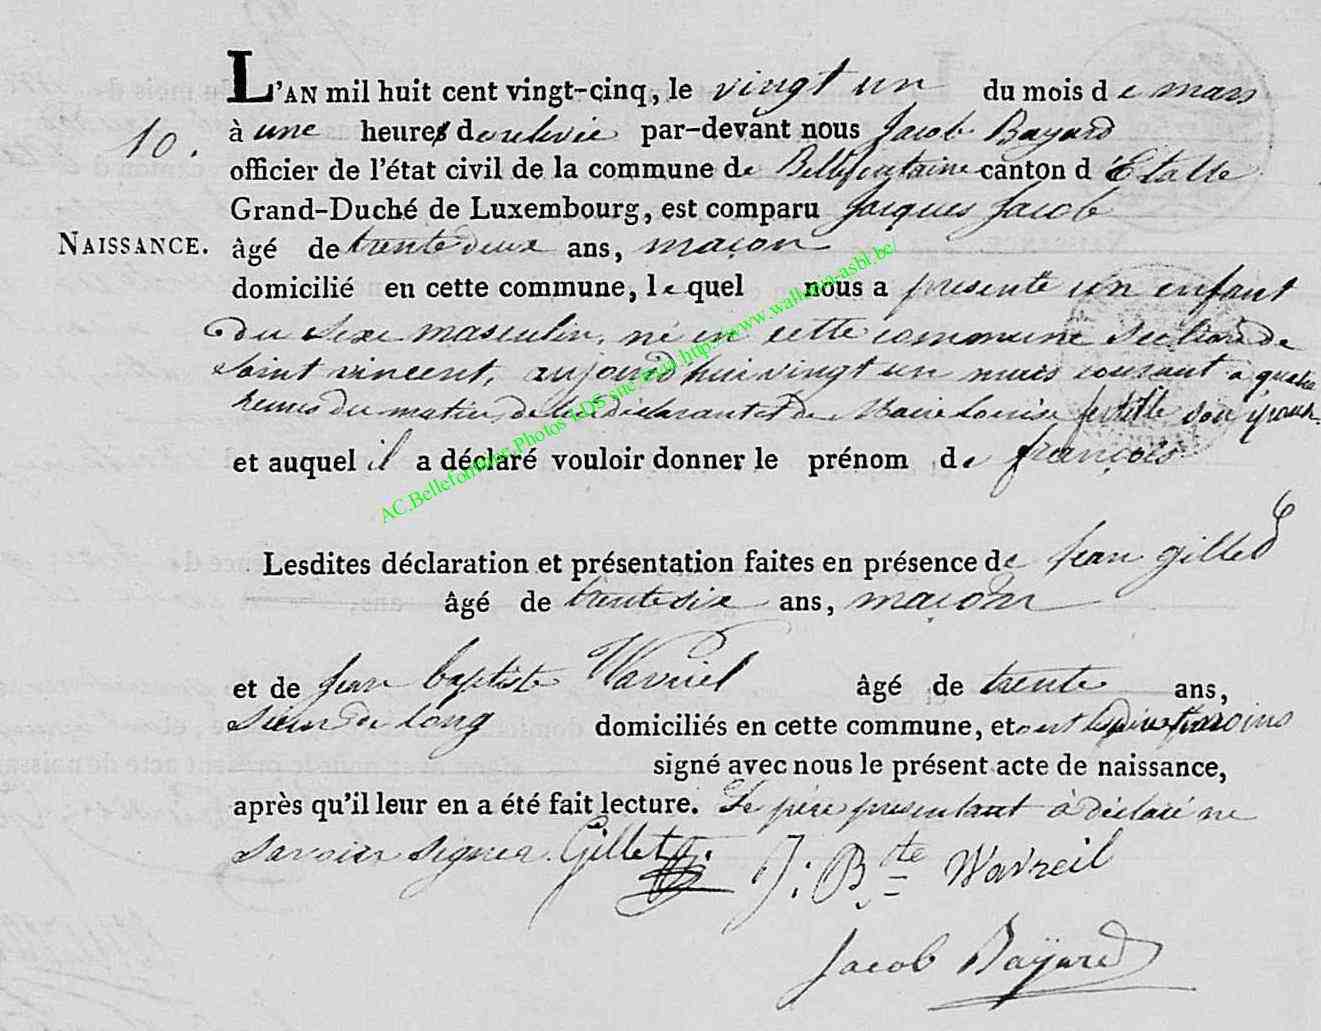 L'AN mil huit cent vingt-cinq, le vingt un du mois de mars
10. à une heures de relevée par-devant nous Jacob Bayard
officier de l'état civil de la commune de Bellefontaine canton d'Etalle
Grand-Duché de Luxembourg, est comparu Jacques Jacob
NAISSANCE. âgé de trente deux ans, maçon
domicilié en cette commune, lequel nous a presenté un enfant
du sexe masculin, né en cette commune section de
saint vincent, aujourd'hui vingt un mars courant a quatre
heures du matin, de lui déclarant et de Marie Louise son épouse
et auquel il a déclaré vouloir donner le prénom de françois
Lesdites déclaration et présentation faites en présence de jean gillet
âgé de trente six ans, maçon
et de jean baptiste Wavreil âgé de trente ans,
sieur de long domiciliés en cette commune, et ont témoins
signé avec nous le présent acte de naissance,
après qu'il leur en a été fait lecture. Le père présentant à déclaré ne
savoir signer. Gillet J: Bte Wavreil
Jacob Baÿard
AC.Bellefontaine.Photos LDS sur http://www.wallonia-asbl.be/